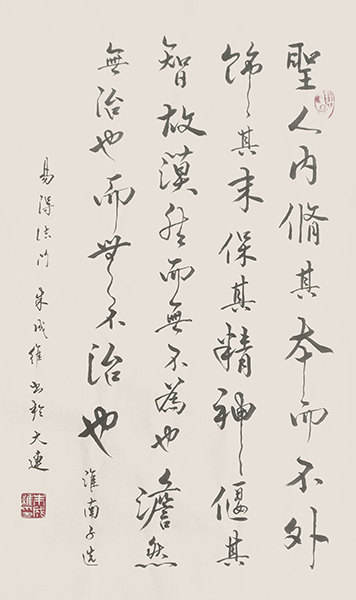 聖人內脩其本而不外
飾其末保其精神偃其
智故漠然而無不為也澹然
無治也而無不治也 淮南子选
易得法门 朱成維书於大連